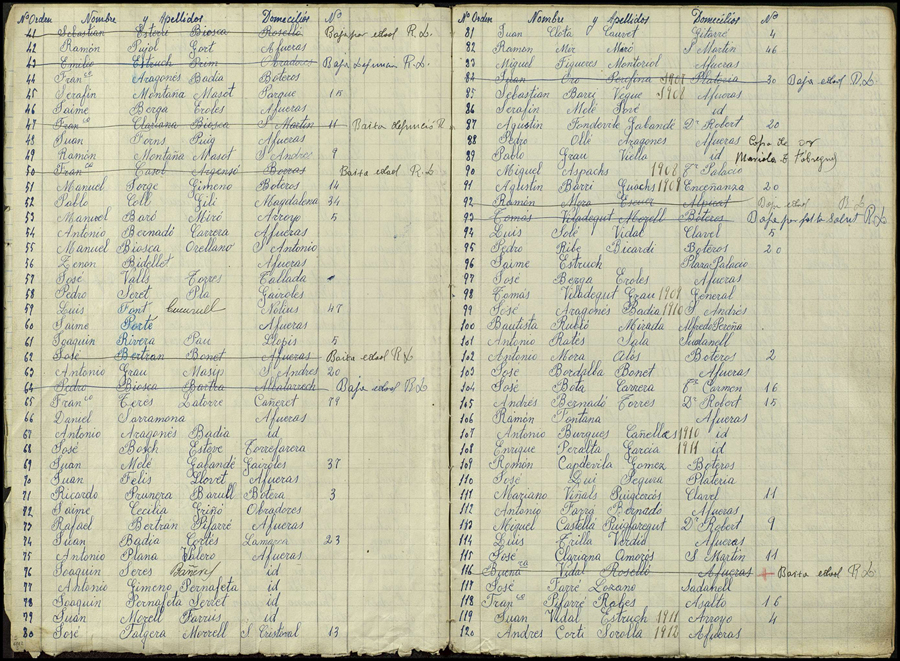 Nº Orden Nombre y Apellidos Domicilios Nº
41 Sebastian Esterle Biosca Roselló Baja por edad R.L.
42 Ramón Pujol Gort Afueras
43 Emilio Estruch Prim Obradores Baja defuncion R.L.
44 Franco Aragonés Badia Boteros
45 Serafin Montana Masot Parque 15
46 Jaime Berga Eroles Afueras
47 Franco Clariana Biosca S. Martin 11 Baixa defunció R
48 Juan Forns Puig Afueras
49 Ramón Montaña Masot S. Andres 9
50 Franco Casol Argensó Boeros Baixa edad R.L.
51 Manuel Jorge Gimeno Boteros 14
52 Pablo Coll Gili Magdalena 34
53 Manuel Baró Miró Arroyo 5
54 Antonio Bernadó Carrera Afueras
55 Manuel Biosca Orellano S. Antonio
56 Zenon Bidellet Afueras
57 José Valls Torres Tallada
58 Pedro Seret Pla Gairoles
59 Luis Font Cucurull 47
60 Jaime Porté Afueras
61 Joaquin Rivera Pau Llopis 5
62 José Bertran Bonet Afueras Baixa edad R.L.
63 Antonio Grau Masip S. Andres 20
64 Pedro Biosca Baja edad R.L.
65 Franco Terés Latorre Cañeret 79
66 Daniel Sarramona Afueras
67 Antonio Aragonés Badia id
68 José Bosch Esteve Torrefarera
69 Juan Melé Gabandé Gairoles 37
70 Juan Felis Lloret Afueras
71 Ricardo Prunera Barull Botera 3
72 Jaime Cecilia Griñó Obradores
73 Rafael Bertran Pifarré Afueras
74 Juan Badia Cortés Lamarca 23
75 Antonio Plana Valero Afueras
76 Joaquin Seres id
77 Antonio Gimeno Pernafeta id
78 Joaquin Pernafeta Serret id
79 Juan Morell Farrus id
80 José Falgera Morrell S. Cristóval 13
Nº Orden Nombre y Apellidos Domicilios Nº
81 Juan Clota Lauret Gitarré 4
82 Ramon Mir Miró S. Martin 46
83 Miguel Figueres Montoriol Afueras
84 Juan Oró Perefina 1907 Plateria 30 Baja edad R.L.
85 Sebastian Bary Vegue 1908 Afueras
86 Serafin Melé Poré id
87 Agustin Fondevila Gabandé Dr. Robert 20
88 Pedro Ollé Aragones Afueras Copa de or
89 Pablo Grau Viella id Mariola 5 Fábregas
90 Miguel Aspachs 1908 Pza Palacio
91 Agustin Barri Guachs 1909 Enceñanza 20
92 Ramón Mora Escuer Alpicat Baja edad R.L.
93 Tomas Viladegut Morell Boteros Baja R.L.
94 Luis Solé Vidal Clavel 5
95 Pedro Ribe Bicardi Boteros 20
96 Jaime Estruch Plaza Palacio
97 José Berga Eroles Afueras
98 Tomás Viladegut Grau 1909 General
99 José Aragonés Badia 1910 S. Andrés
100 Bautista Rubió Mirada Alfredo Pereña
101 Antonio Ratés Sala Sudanell
102 Antonio Mora Alós Boteros 2
103 José Bordalla Bonet Afueras
104 José Bota Carrera Pza Carmen 16
105 Andrés Bernadó Torres Dr. Robert 15
106 Ramón Fontana Afueras
107 Antonio Burgues Cañellas 1910 id
108 Enrique Peralta Garcia 1911 id
109 Román Capdevila Gomez Boteros
110 José Segura Plateria
111 Mariano Viñals Puigcercós Clavel 11
112 Antonio Farra Bernado Afueras
113 Miquel Castellá Puigfaregut Dr. Robert 9
114 Luis Trilla Verdia Afueras
115 José Clariana Amoros S. Martin 11
116 Buena Vidal Roselló Afueras + Baixa edad R.L.
117 José Farré Lozano Sudanell
118 Franco Pifarré Rabes Asalto 16
119 Juan Vidal Estruch 1911 Arroyo 4
120 Andres Corti Sorolla 1912 Afueras